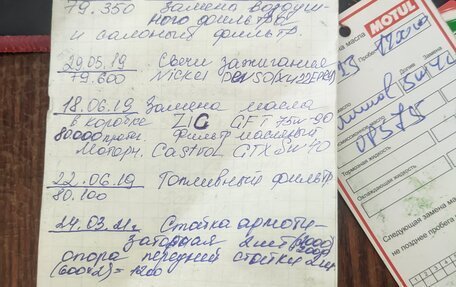 79.350 Замена воздуш-
ного фильтра
и салоный фильтр.
29.05.19 Свечи зажигания
79.600 Nickel DENSO
18.06.19 Замена масла
в коробке ZIC GFT 75w-90
80000 фильтр масляный
Моторн. Castrol GTX 5w40
22.06.19 Топливный фильтр
80.100
24.03.21г Стойка аморти-
заторная 2шт
опора передний стойки 2шт
(600×2)=1200
MOTUL
на масла
Пробег
Дата
Замена
5w40
Тормозная жидкость
Охлаждающая жидкость
Следующая замена ма
не позднее пробега